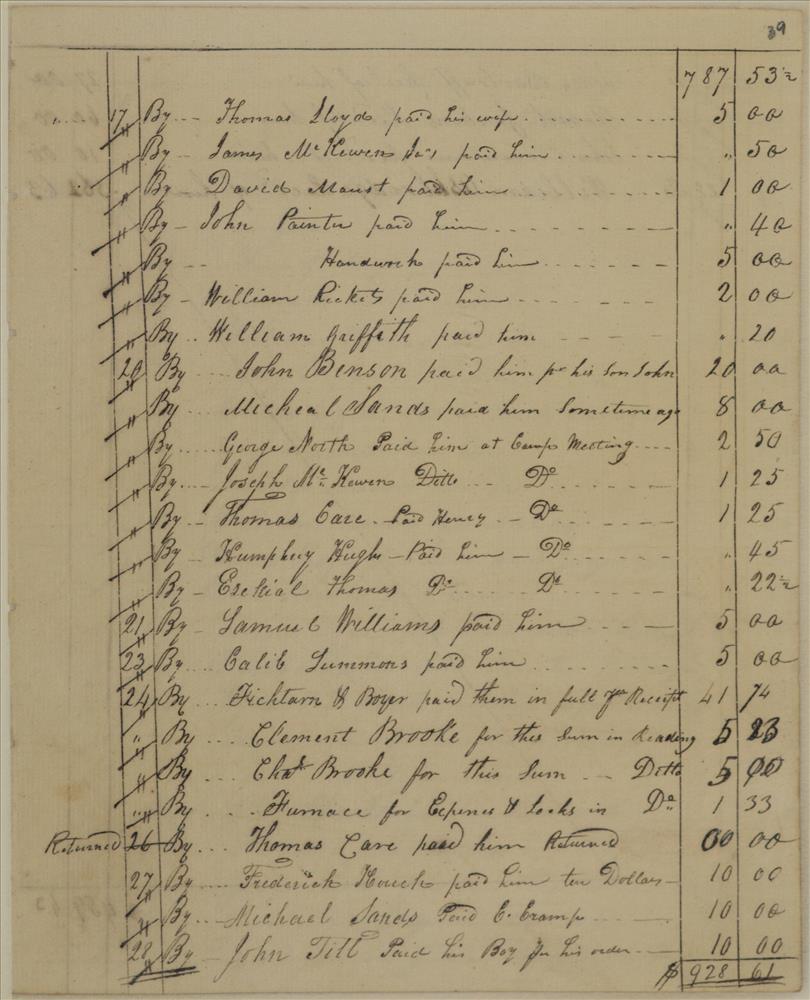 39
787 53½
" 17 By - Thomas Lloyd paid his wife 5 00
" By - James McKewen Jas paid him " 50
" By - David Maust paid him 1 00
" By - John Painter paid him " 40
" By - Handwork paid him 5 00
" By - William Rickets paid him 2 00
" By - William Griffith paid him " 20
20 By - John Benson paid him pr his Son John 20 00
" By - Micheal Sands paid him Sometime ago 8 00
" By - George North Paid him at Camp Meeting 2 50
" By - Joseph McKewen Ditto Do 1 25
" By - Thomas Care - Paid Henry - Do 1 25
" By - Humphrey Hughs - Paid him - Do " 45
" By - Esekial Thomas Do Do " 22½
21 By - Samuel Williams paid him 5 00
23 By - Calib Summons paid him 5 00
24 By - Fichtarn & Boyer paid them in full pr Receipt 41 74
" By - Clement Brooke for this Sum in Reading 5 23
" By - Chas Brooke for this Sum - Ditto 5 00
" By - Furnace for Expenses & Locks in Do 1 33
Returned 26 By - Thomas Care paid him Returned 00 00
27 By - Frederick Houck paid him ten Dollars 10 00
" By - Michael Sands Paid E. Cramp 10 00
28 By - John Till Paid his Boy pr his order 10 00
$ 928 61